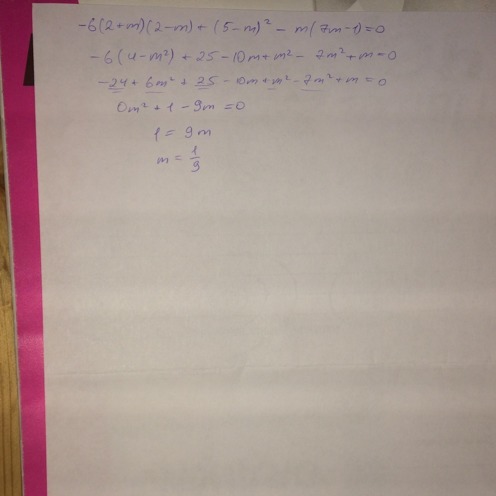 -6(2+m)(2-m)+(5-m)² - m(7m-1)=0
-6(4-m²)+25-10m+m²-7m²+m=0
-24+6m²+25-10m+m²-7m²+m=0
0m²+1-9m=0
1=9m
m=1/9